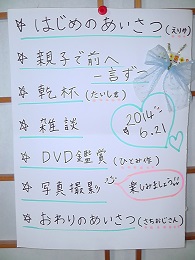 ☆ はじめのあいさつ(えりか)
☆ 親子で前へ
一言ずつ
☆ 乾杯(たいしき)
☆ 雑談
2014
6.21
☆ DVD鑑賞(ひとみ作)
☆ 写真撮影
楽しみましょう
☆ おわりのあいさつ(さちおじさん)